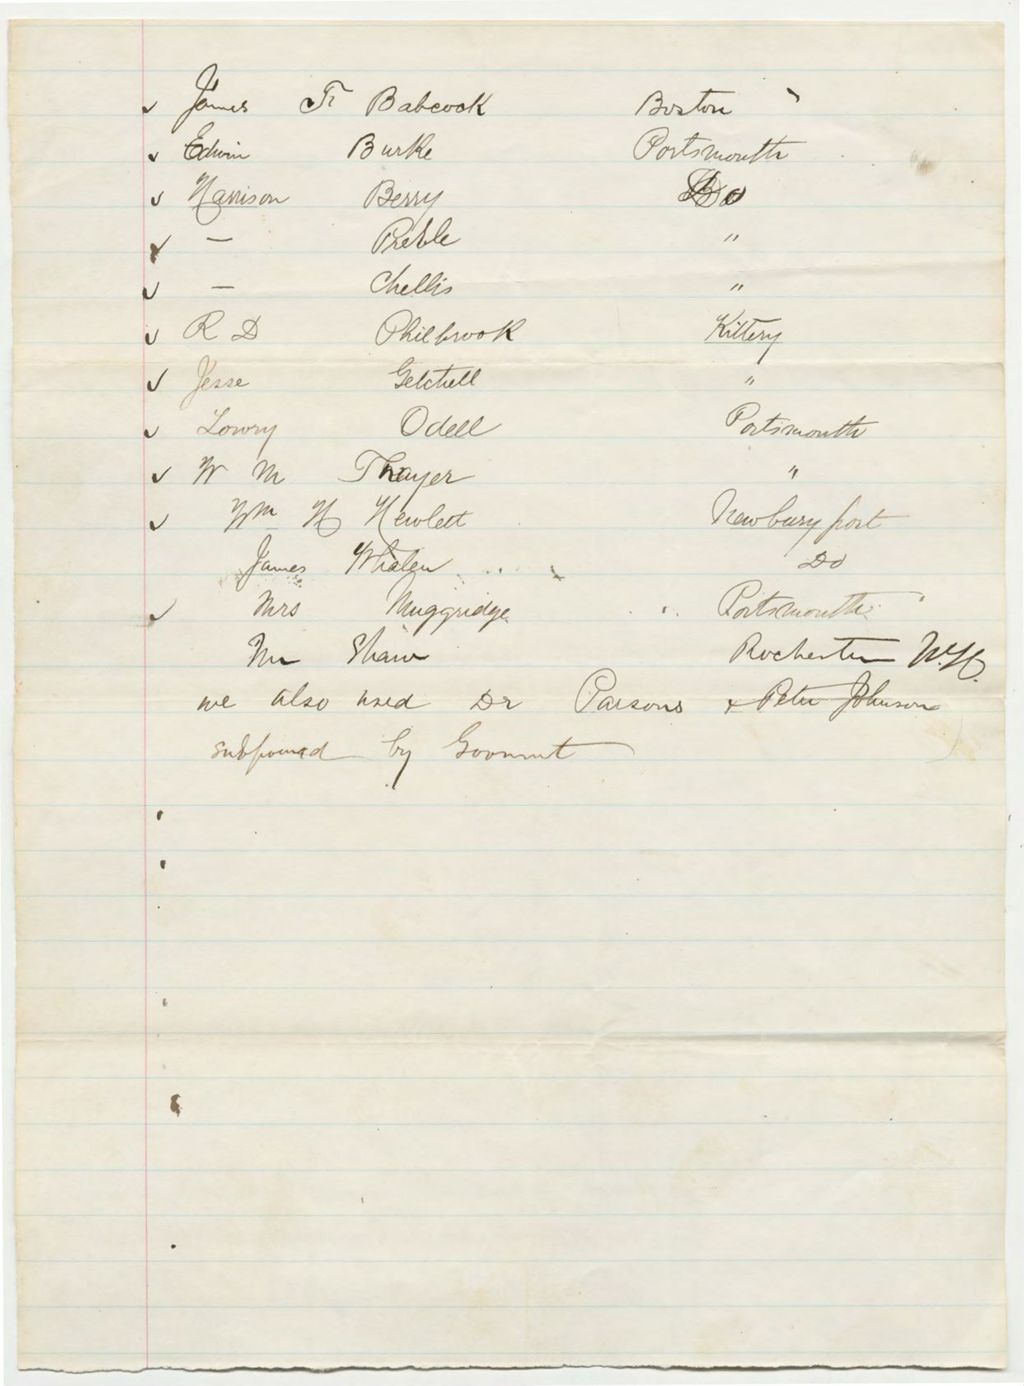 ✓ James Fr Babcock Boston "
✓ Edwin Burke Portsmouth
✓ Harrison Berry Do
✓ — Preble "
✓ — Chellis "
✓ R D Philbrook Kittery
✓ Jesse Getchell "
✓ Lowry Odell Portsmouth
✓ W M Thayer "
✓ Wm H Hewlett Newburyport
James Whalen Do
✓ Mrs Muggridge Portsmouth
Mr Shaw Rochester N.H.
we also used Dr Parsons & Peter Johnson
subpoenaed by Goovmnt